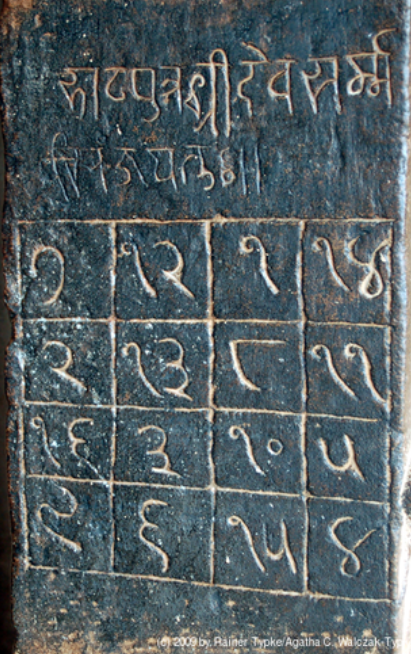 पुत्रश्रीदेवसर्म्म
७ १२ १ १४
२ १३ ८ ११
१६ ३ १० ५
९ ६ १५ ४
(c) 2009 by Rainer Typke/Agatha C. Walczak-Typ